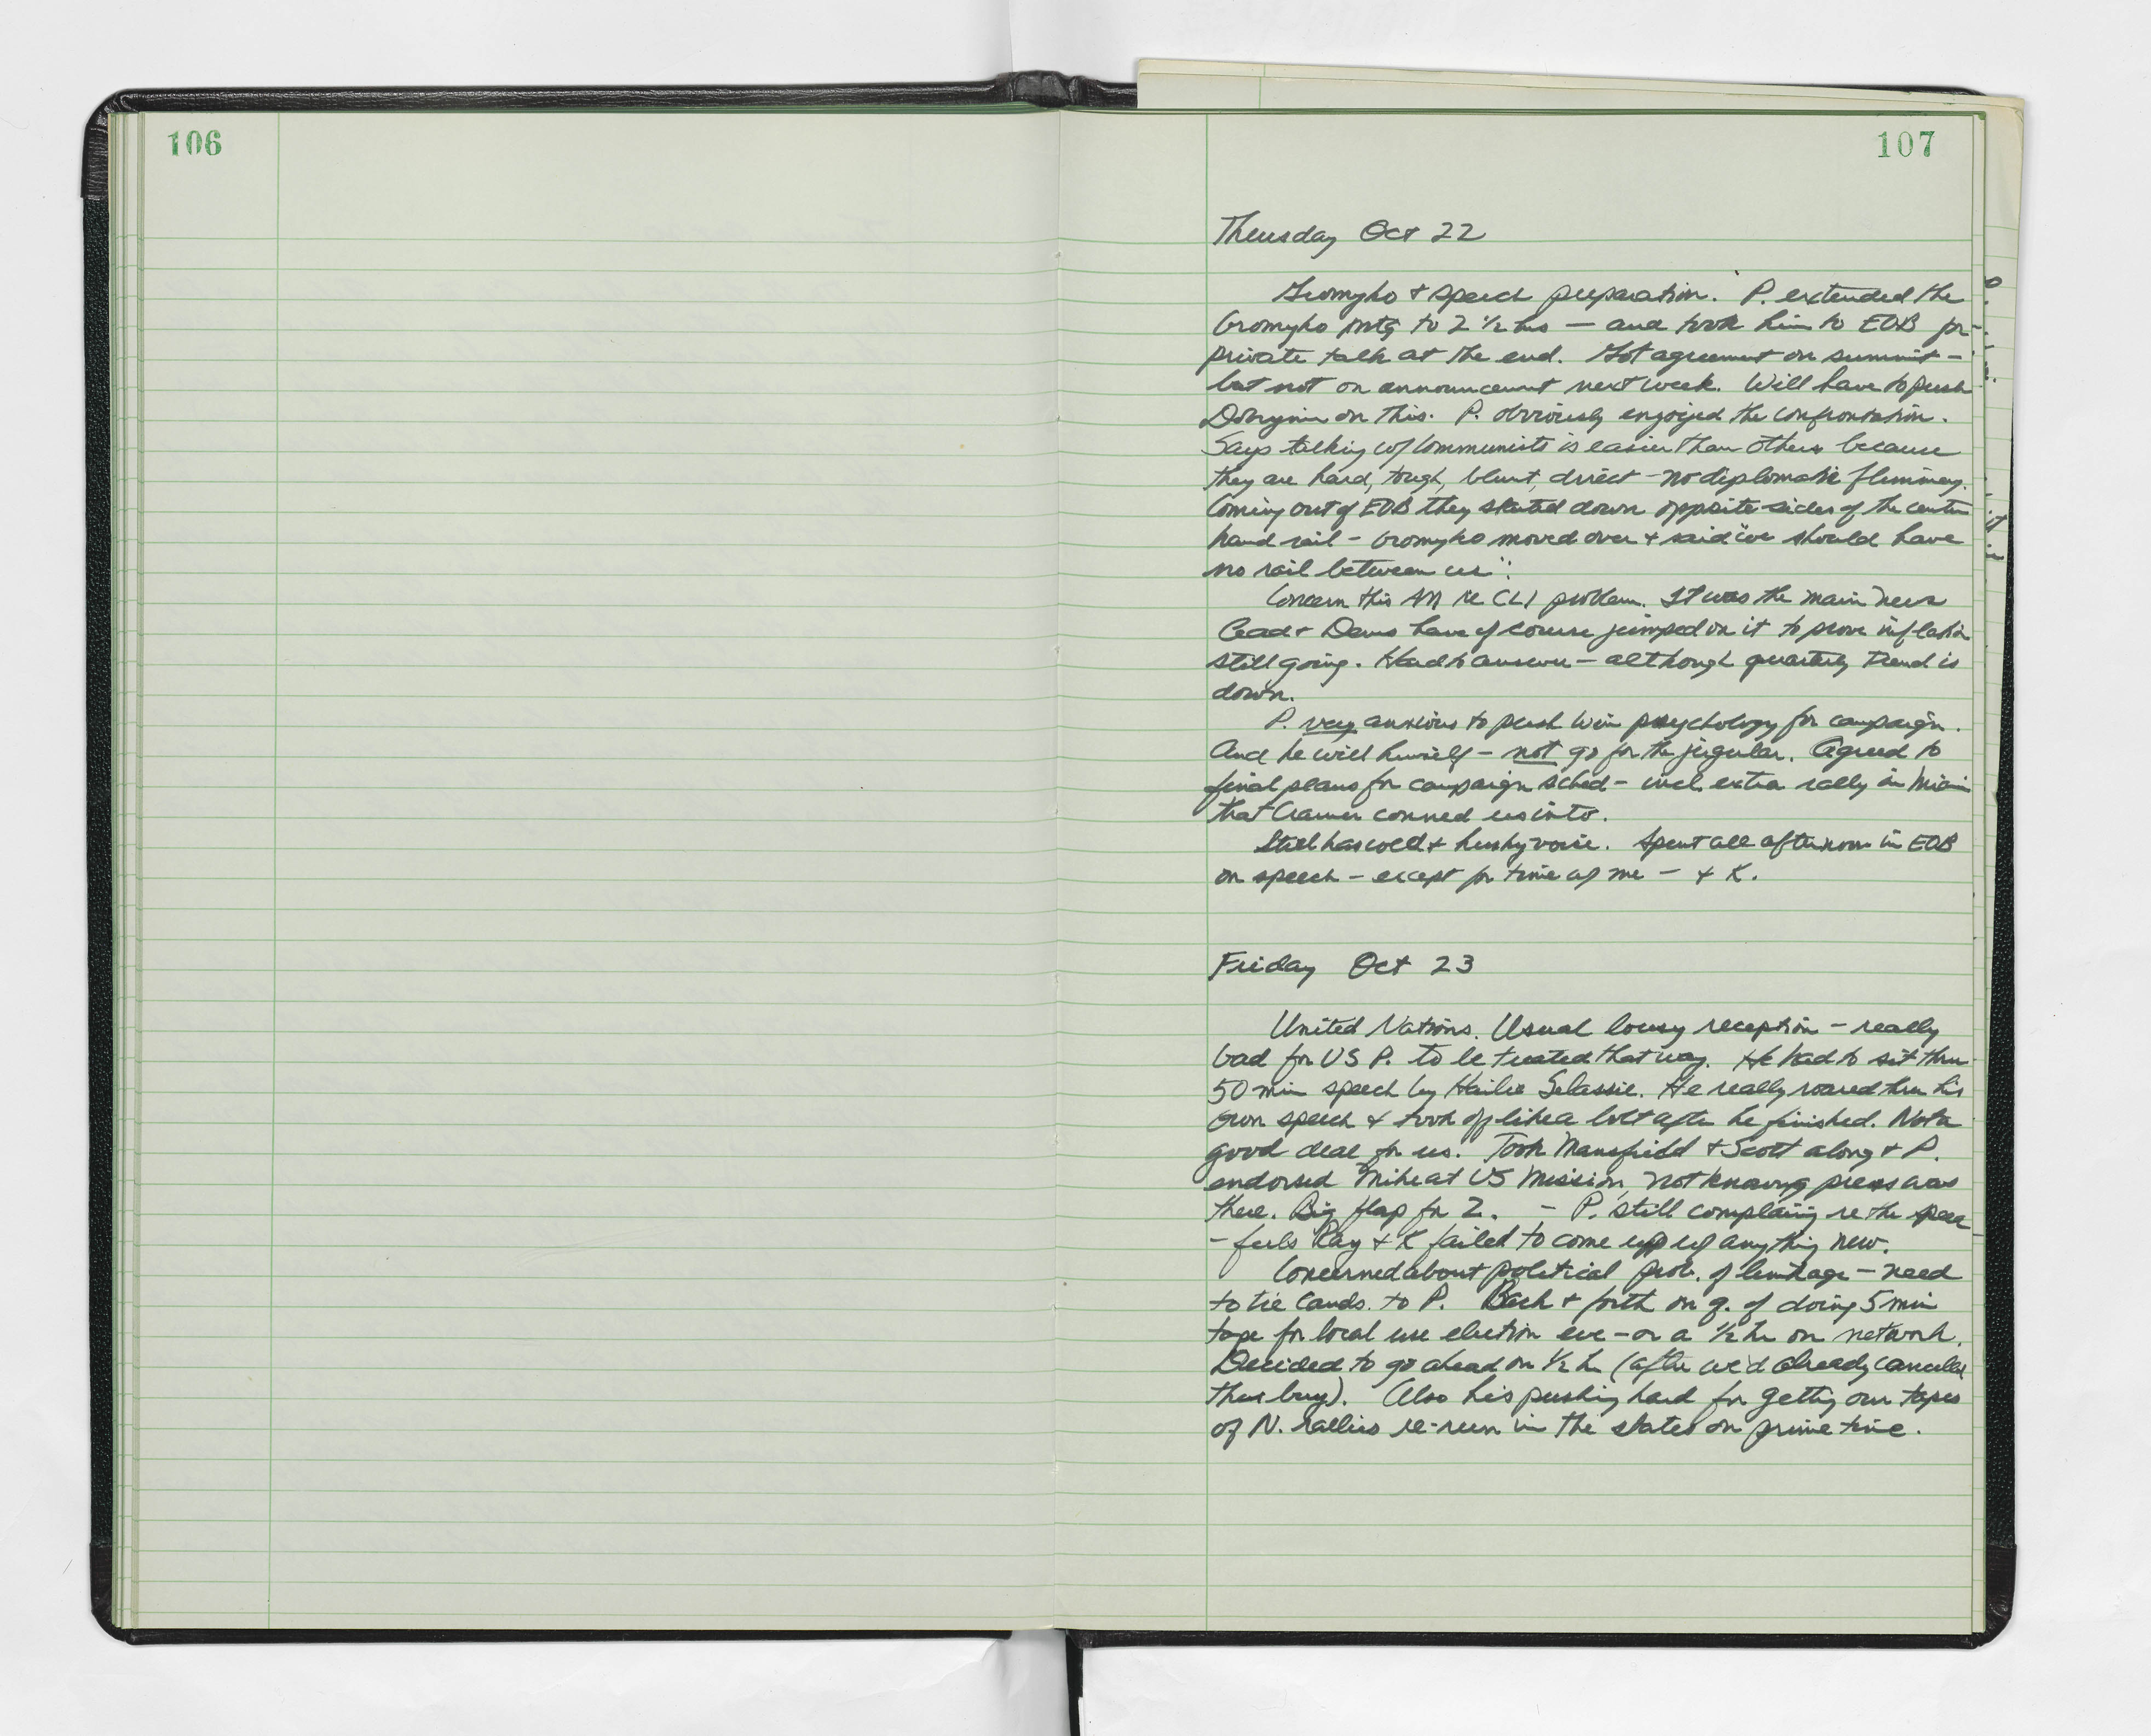 106
107
Thursday Oct 22
Gromyko + speech preparation. P. extended the
Gromyko mtg to 2 1/2 hrs — and took him to EOB for
private talk at the end. Got agreement on summit -
but not on announcement next week. Will have to push
Dobrynin on this. P. obviously enjoyed the confrontation.
Says talking w/ Communists is easier than others because
they are hard, tough, blunt, direct - no diplomatic flummery.
Coming out of EOB they started down opposite sides of the center
hand rail - Gromyko moved over + said "we should have
no rail between us".
Concern this AM re CLI problem. It was the main news
lead + Dems have of course jumped on it to prove inflation
still going. Hard to answer - although quarterly trend is
down.
P. very anxious to push win psychology for campaign.
And he will himself - not go for the jugular. Agreed to
final plans for campaign sched - incl. extra rally in Miami
that Cramer conned us into.
Still has cold + husky voice. Spent all afternoon in EOB
on speech - except for time w/ me - + K.
Friday Oct 23
United Nations. Usual lousy reception - really
bad for US P. to be treated that way. He had to sit thru
50 min speech by Hailie Selassie. He really roared thru his
own speech + took off like a bolt after he finished. Not a
good deal for us. Took Mansfield + Scott along + P.
endorsed Mike at US Mission, not knowing press was
there. Big flap for Z. - P. still complaing re the
- feels Ray + K failed to come up w/ anything new.
Concerned about political prob. of linkage - need
to tie cands. to P. Back + forth on q. of doing 5 min
tape for local use election eve - or a 1/2 hr on network.
Decided to go ahead on 1/2 hr (after we'd already cancelled
buy). Also he's pushing hard for getting our tapes
of N. rallies re-run in the states on prime time.